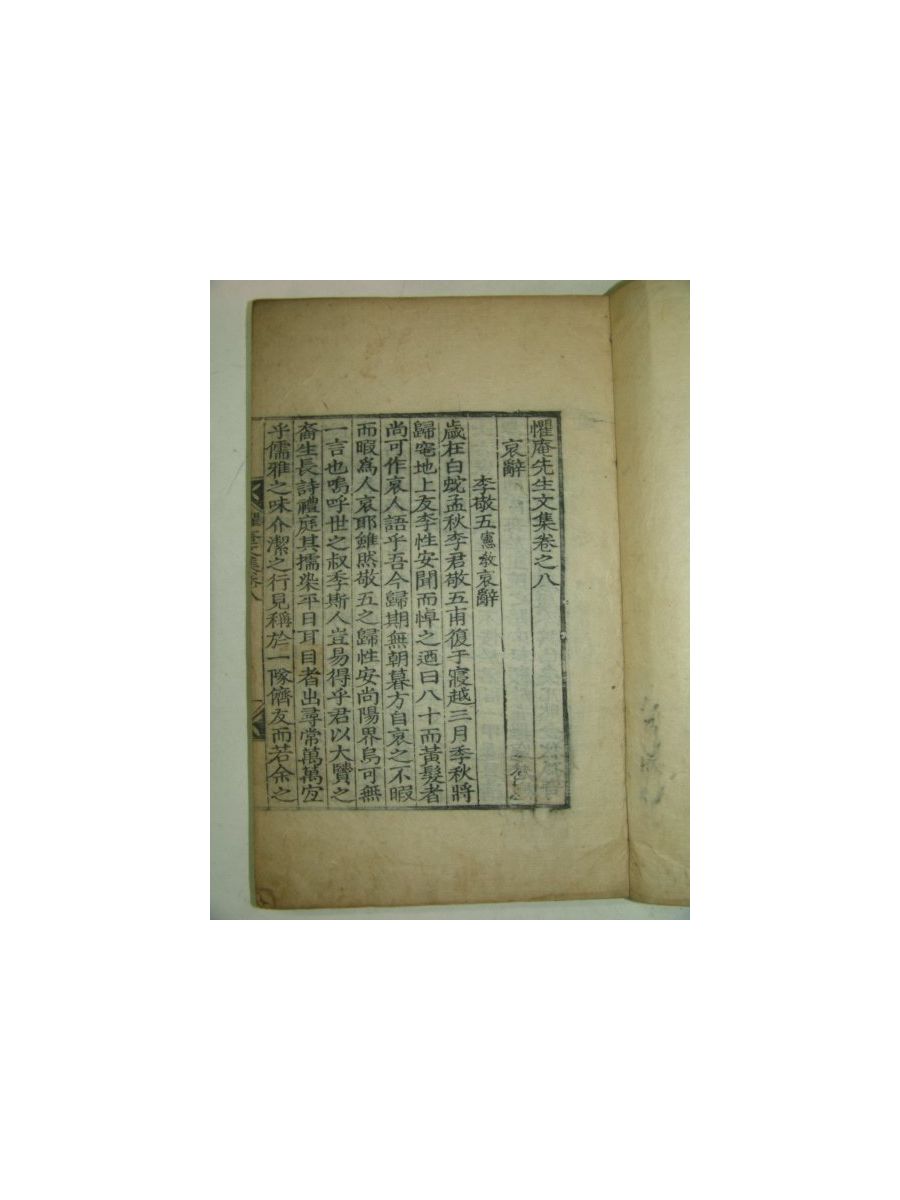 懼庵先生文集卷之八
哀辭
李敬五憲敎哀辭
歲在白蛇孟秋李君敬五甫復于寢越三月季秋將
歸窆地上友李性安聞而悼之迺曰八十而黃髮者
尚可作哀人語乎吾今歸期無朝暮方自哀之不暇
而暇爲人哀耶雖然敬五之歸性安尚陽界烏可無
一言也嗚呼世之叔季斯人豈易得乎君以大贒之
裔生長詩禮庭其擩染平日耳目者出尋常萬萬宜
乎儒雅之味介潔之行見稱於一隊儕友而若余之
懼菴文集卷八